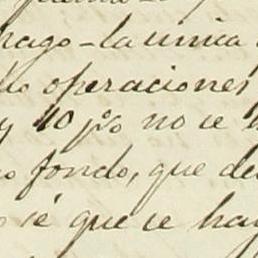 pago - la unica
operaciones
y 10 p% no se
fondo, que de
sé que se hay